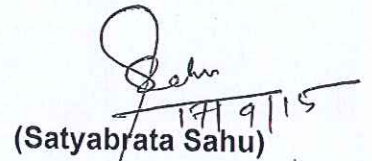 Sahu
17/9/15
(Satyabrata Sahu)